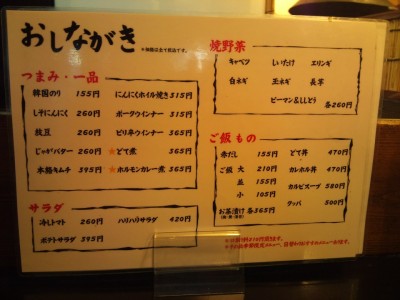 おしながき
※価格は全て税込です。
つまみ・一品
韓国のり 155円
しそにんにく 260円
枝豆 260円
じゃがバター 260円
本格キムチ 395円
にんにくホイル焼き 315円
ポークウインナー 315円
ピリ辛ウインナー 365円
★どて煮 365円
★ホルモンカレー煮 365円
サラダ
冷しトマト 260円
ポテトサラダ 395円
ハリハリサラダ 420円
焼野菜
キャベツ しいたけ エリンギ
白ネギ 玉ネギ 長芋
ピーマン&ししとう
各260円
ご飯もの
赤だし 155円
ご飯 大 210円
並 155円
小 105円
お茶漬け 各365円
どて丼 470円
カレホル丼 470円
カルビスープ 580円
クッパ 500円